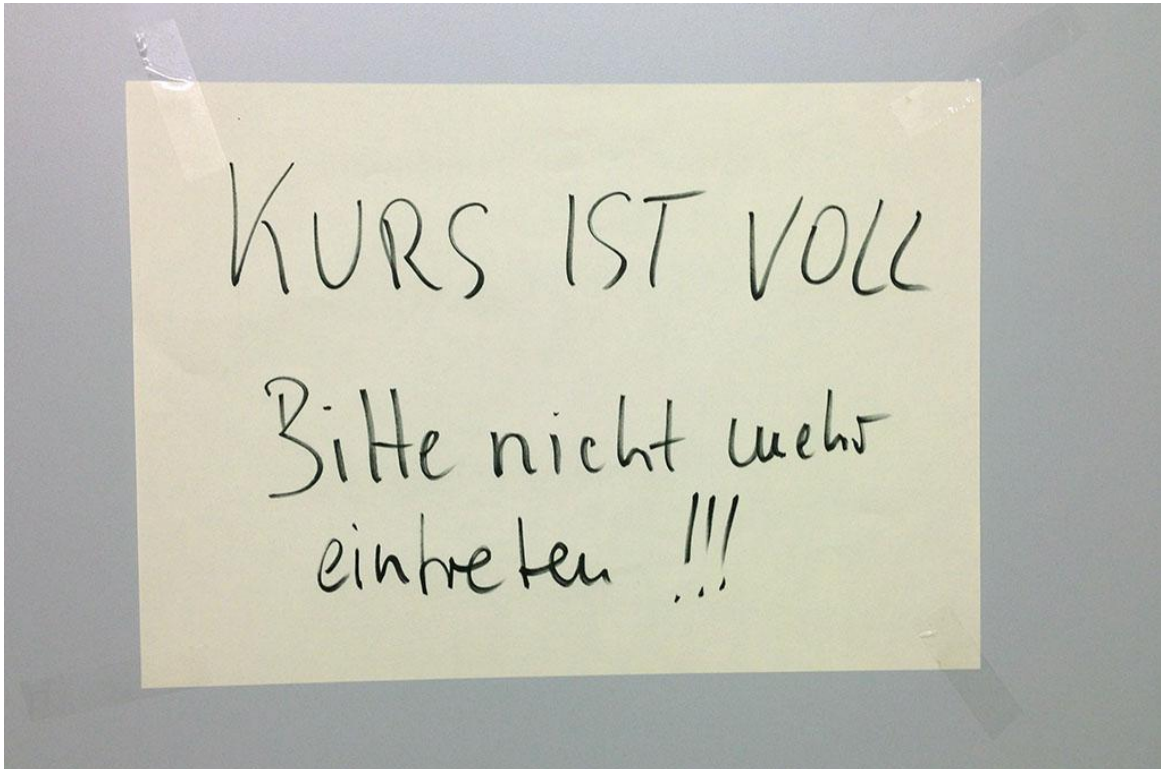 KURS IST VOLL
Bitte nicht mehr
eintreten !!!